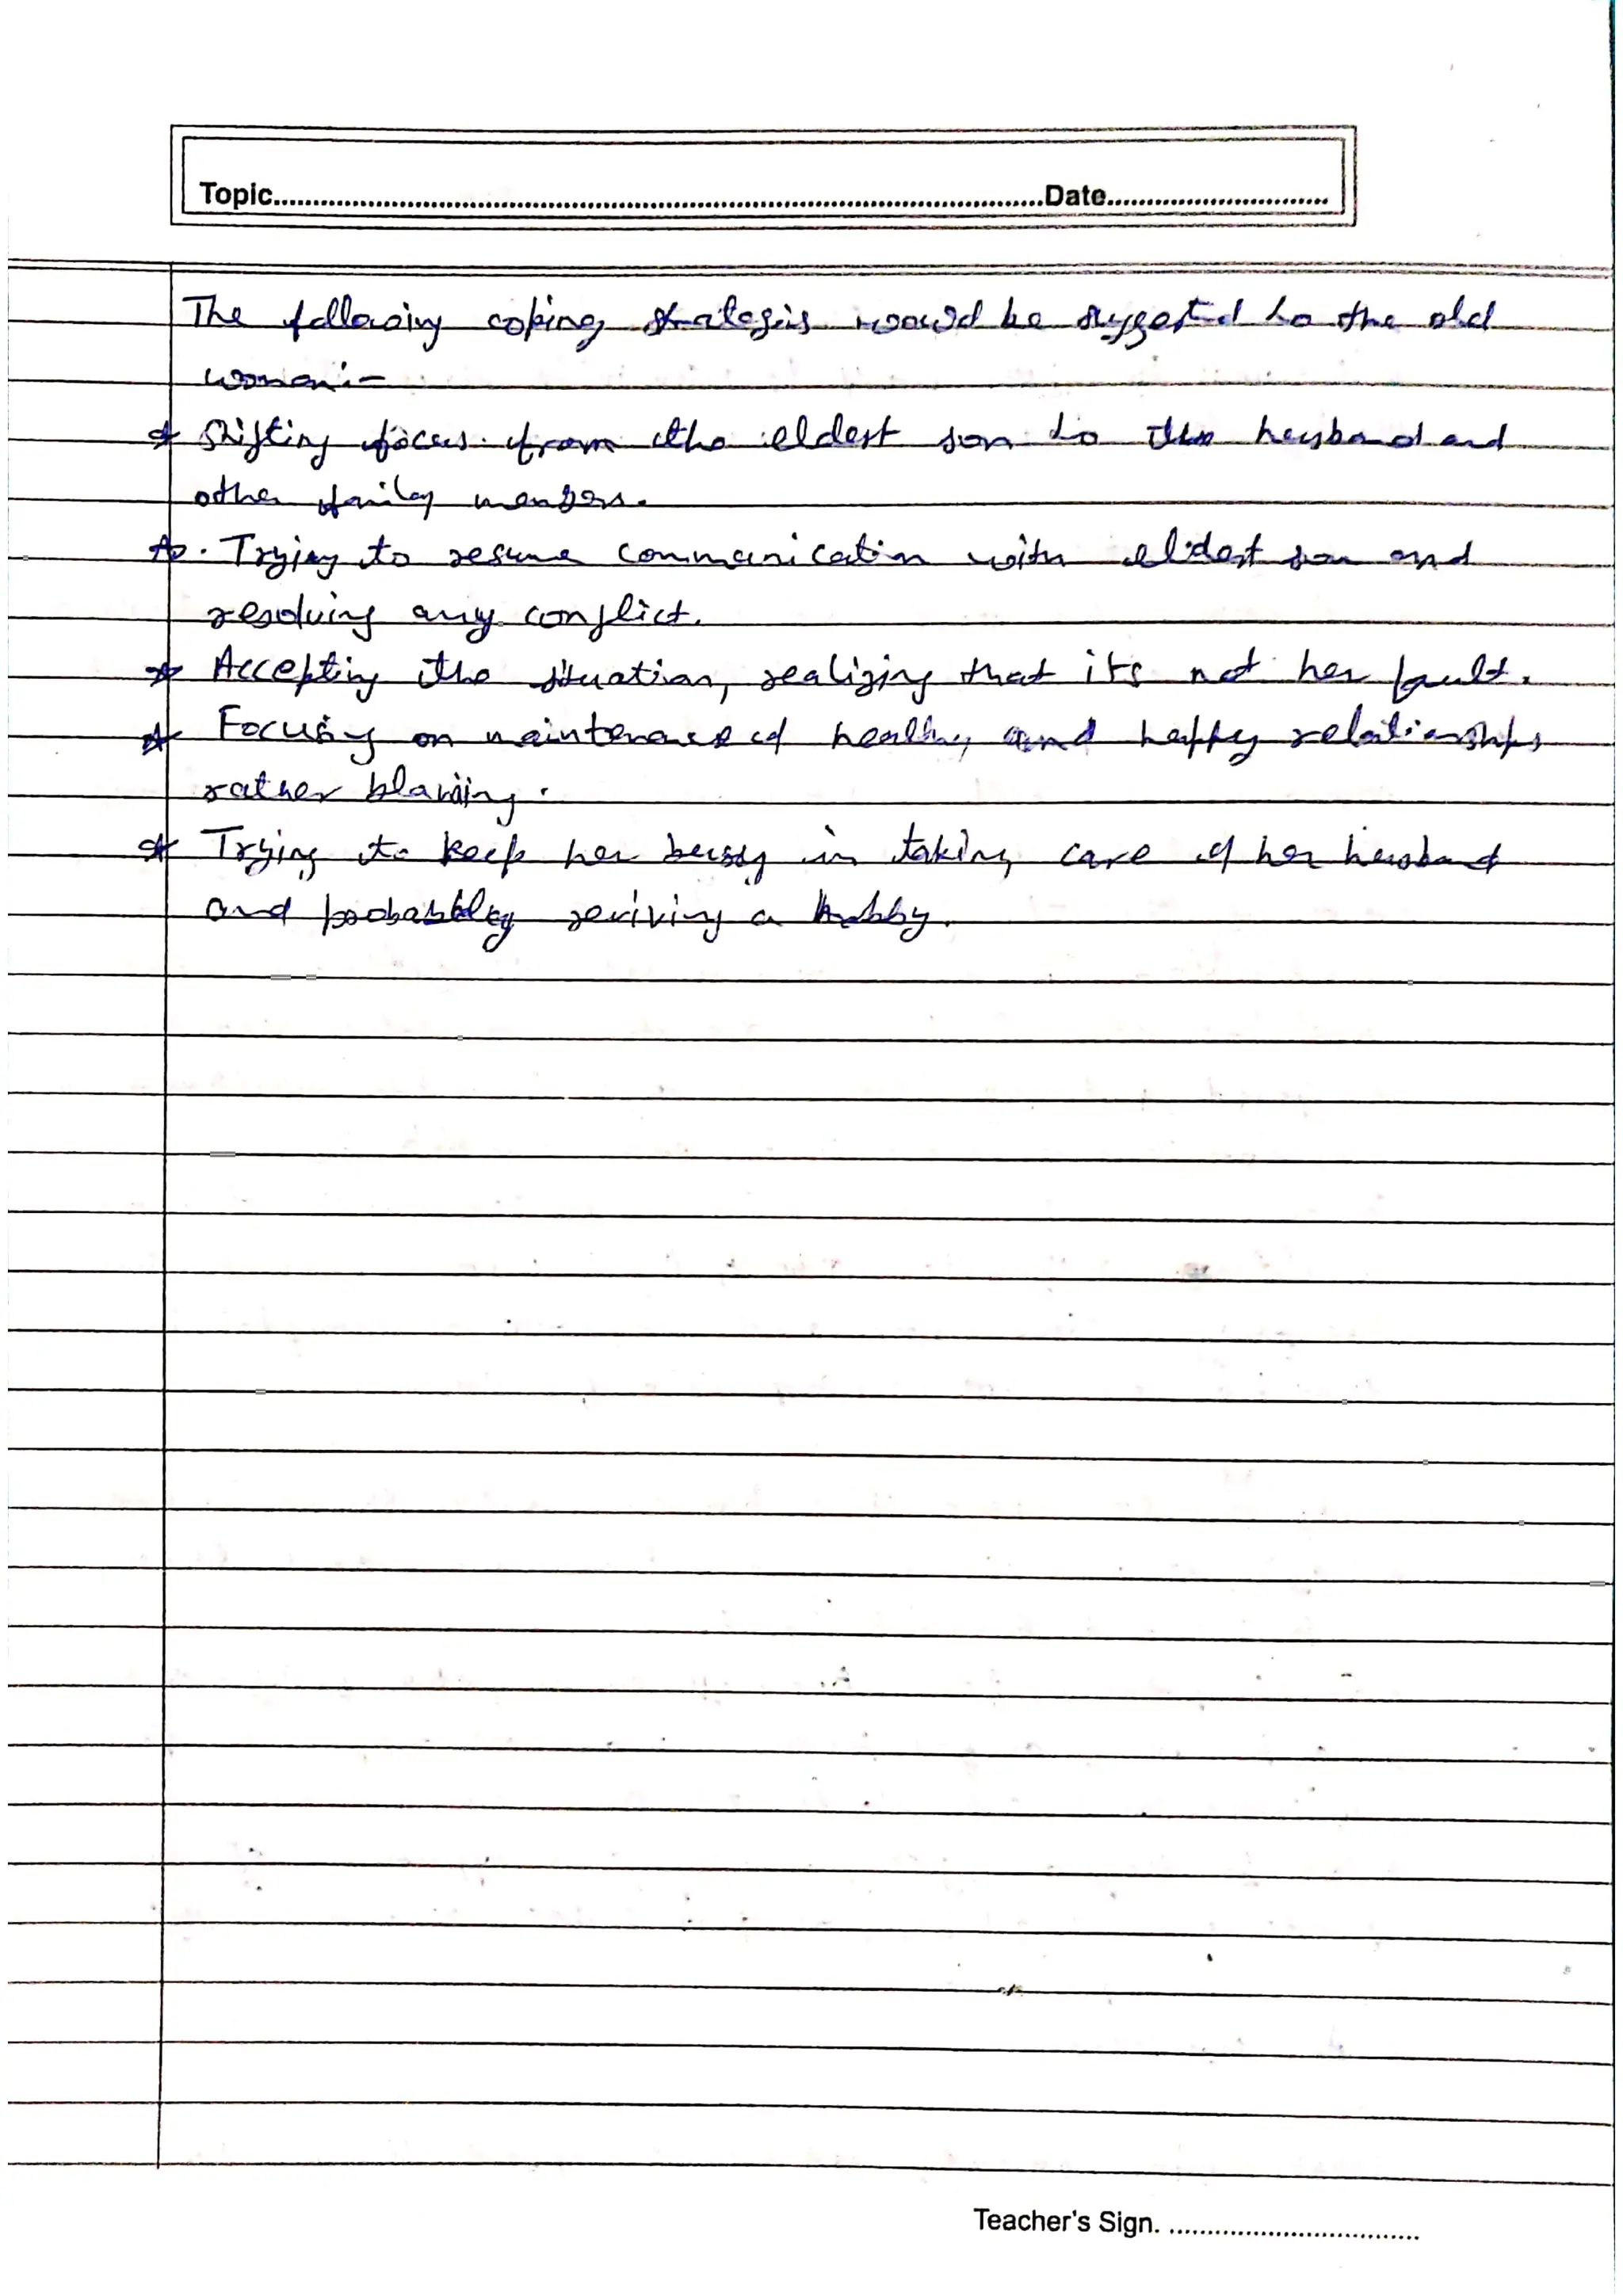 Topic..........Date..........
The following coping strategis would be suggested to the old
woman:-
* Shifting focus from the eldest son to the husband and
other family members.
* Trying to resume communication with eldest son and
resolving any conflict.
* Accepting the situation, realizing that its not her fault.
* Focusing on maintenance of healthy and happy relationships
rather blaming.
* Trying to keep her busy in taking care of her husband
and probably reviving a hobby.
Teacher's Sign. ..........